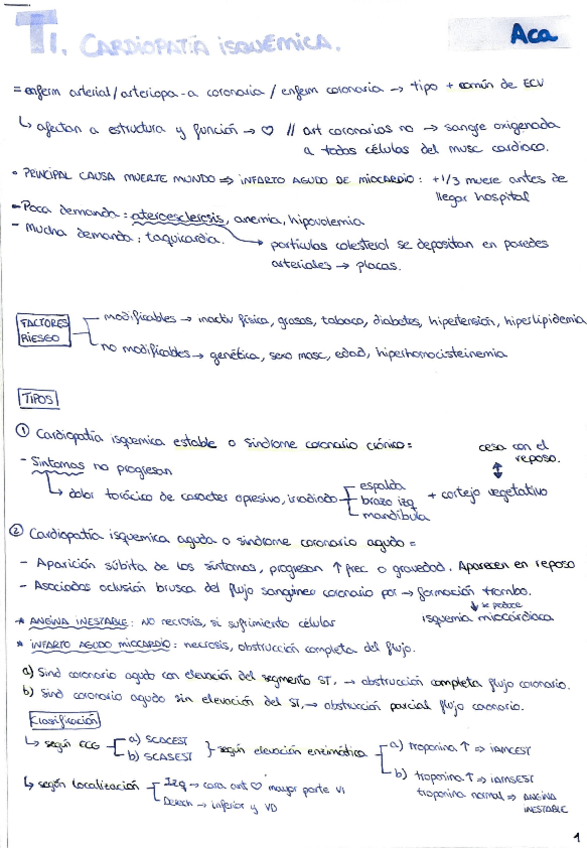 T1. CARDIOPATÍA ISQUÉMICA.
Aca
= enferm arterial / arteriopa-a coronaria / enferm coronaria → tipo + común de ECV
↳ afectan a estructura y función → ♡ // art coronarias no → sangre oxigenada
a todas células del musc cardiaco.
• PRINCIPAL CAUSA MUERTE MUNDO ⇒ INFARTO AGUDO DE MIOCARDIO: +1/3 muere antes de
llegar hospital
- Poca demanda: ateroesclerosis, anemia, hipovolemia
- Mucha demanda: taquicardia.
→ partículas colesterol se depositan en paredes
arteriales → placas.
FACTORES RIESGO
modificables → inactiv física, grasas, tabaco, diabetes, hipertensión, hiperlipidemia
no modificables → genética, sexo masc, edad, hiperhomocisteinemia
TIPOS
① Cardiopatía isquemica estable o síndrome coronario crónico =
cesa con el
reposo.
- Síntomas no progresan
↳ dolor torácico de caracter opresivo, irradiado
espalda
brazo izq
mandíbula
+ cortejo vegetativo
② Cardiopatía isquemica aguda o síndrome coronario agudo =
- Aparición súbita de los síntomas, progresan ↑ frec o gravedad. Aparecen en reposo
- Asociados oclusión brusca del flujo sanguíneo coronario por → formación trombo.
↓ produce
isquemia miocárdiaca
* ANGINA INESTABLE: NO necrosis, si sufrimiento células
* INFARTO AGUDO MIOCARDIO: necrosis, obstrucción completa del flujo.
a) Sind coronario agudo con elevación del segmento ST, → obstrucción completa flujo coronario.
b) Sind coronario agudo sin elevación del ST, → obstrucción parcial flujo coronario.
Clasificación
↳ según ECG
a) SCACEST
b) SCASEST
} según elevación enzimática
a) troponina ↑ ⇒ IAMCEST
b) troponina ↑ ⇒ IAMSEST
troponina normal ⇒ ANGINA
INESTABLE
↳ según localización
Izq → cara ant ♡ mayor parte VI
Derech → inferior y VD
1